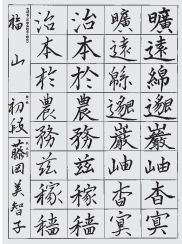 曠遠綿邈巖岫杳冥
曠遠綿邈巖岫杳冥
治本於農務茲稼穡
治本於農務茲稼穡
福山 初段 藤岡美智子